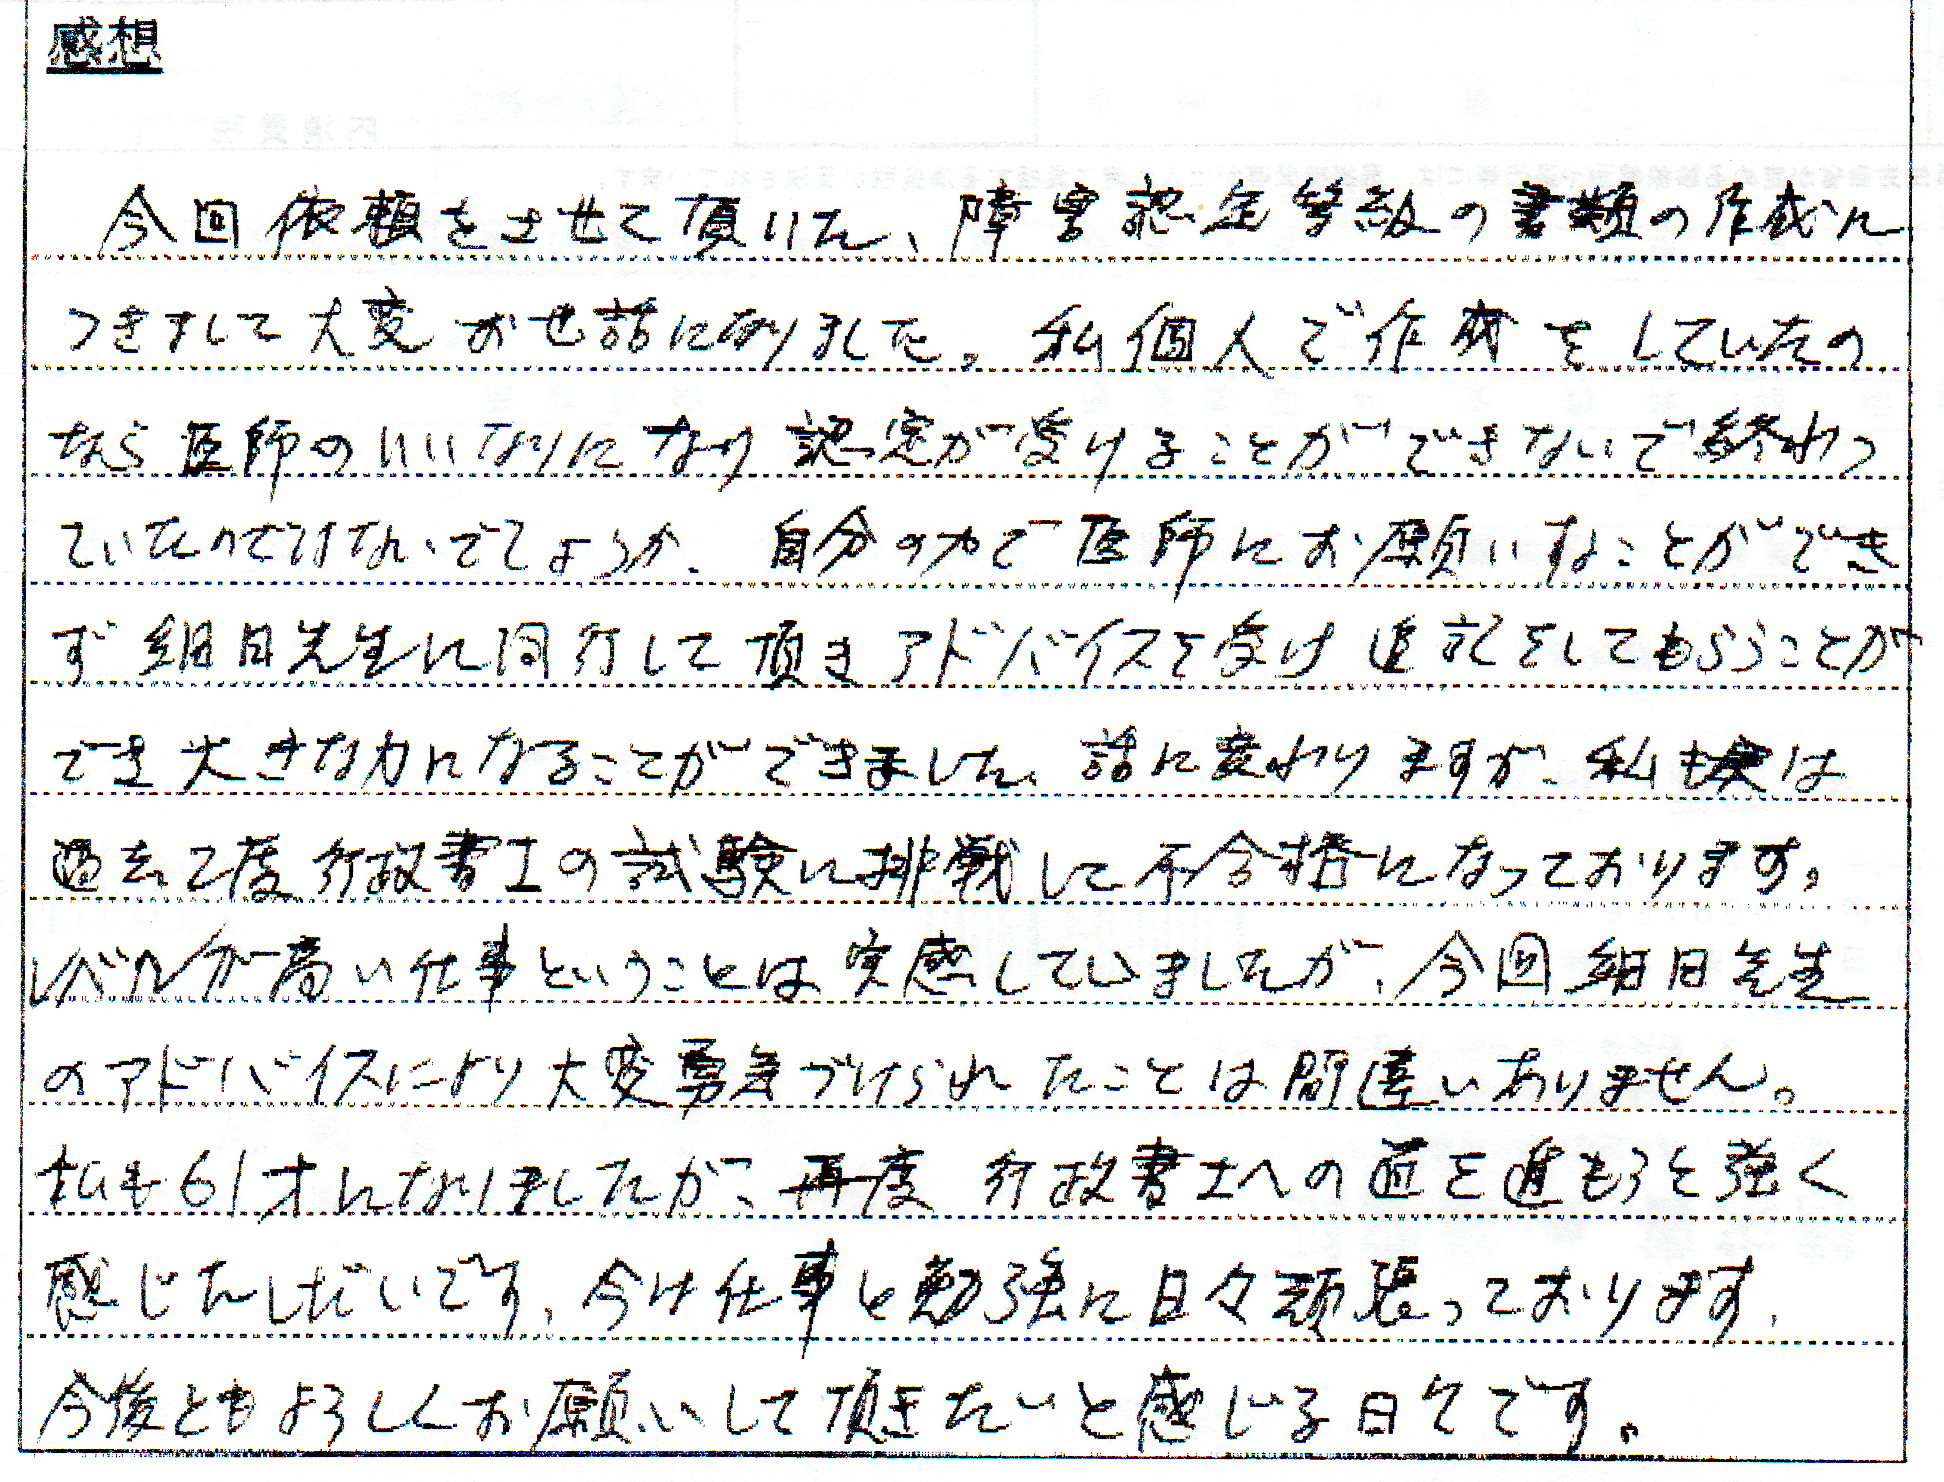 感想
今回依頼をさせて頂いた、障害認定等級の書類の作成に
つきまして大変お世話になりました。私個人で作成をしていたの
なら医師のいいなりになり認定が受けることができないで終わっ
ていたのではないでしょうか、自分の力で医師にお願いすることができ
ず細田先生に同行して頂きアドバイスを受け追記をしてもらうことが
でき大きな力になることができました、話に変わりますが、私も実は
過去2度行政書士の試験に挑戦して不合格になっております。
レベルが高い仕事ということは実感していましたが、今回細田先生
のアドバイスにより大変勇気づけられたことは間違いありません。
私も61才になりましたが、再度行政書士への道を進もうと強く
感じたしだいです、今は仕事も勉強に日々頑張っております、
今後ともよろしくお願いして頂きたいと感じる日々です。